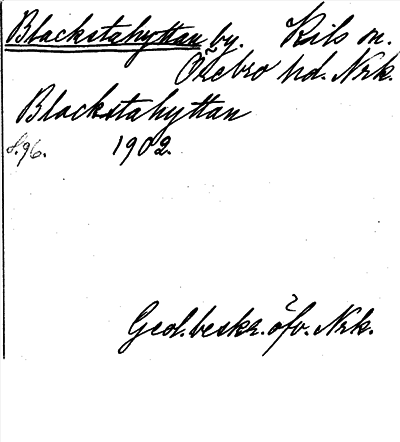 Blackstahyttan by. Kils sn.
Örebro hd. Nrk.
Blackstahyttan
s. 96. 1902.
Geol. beskr. öfv. Nrk.